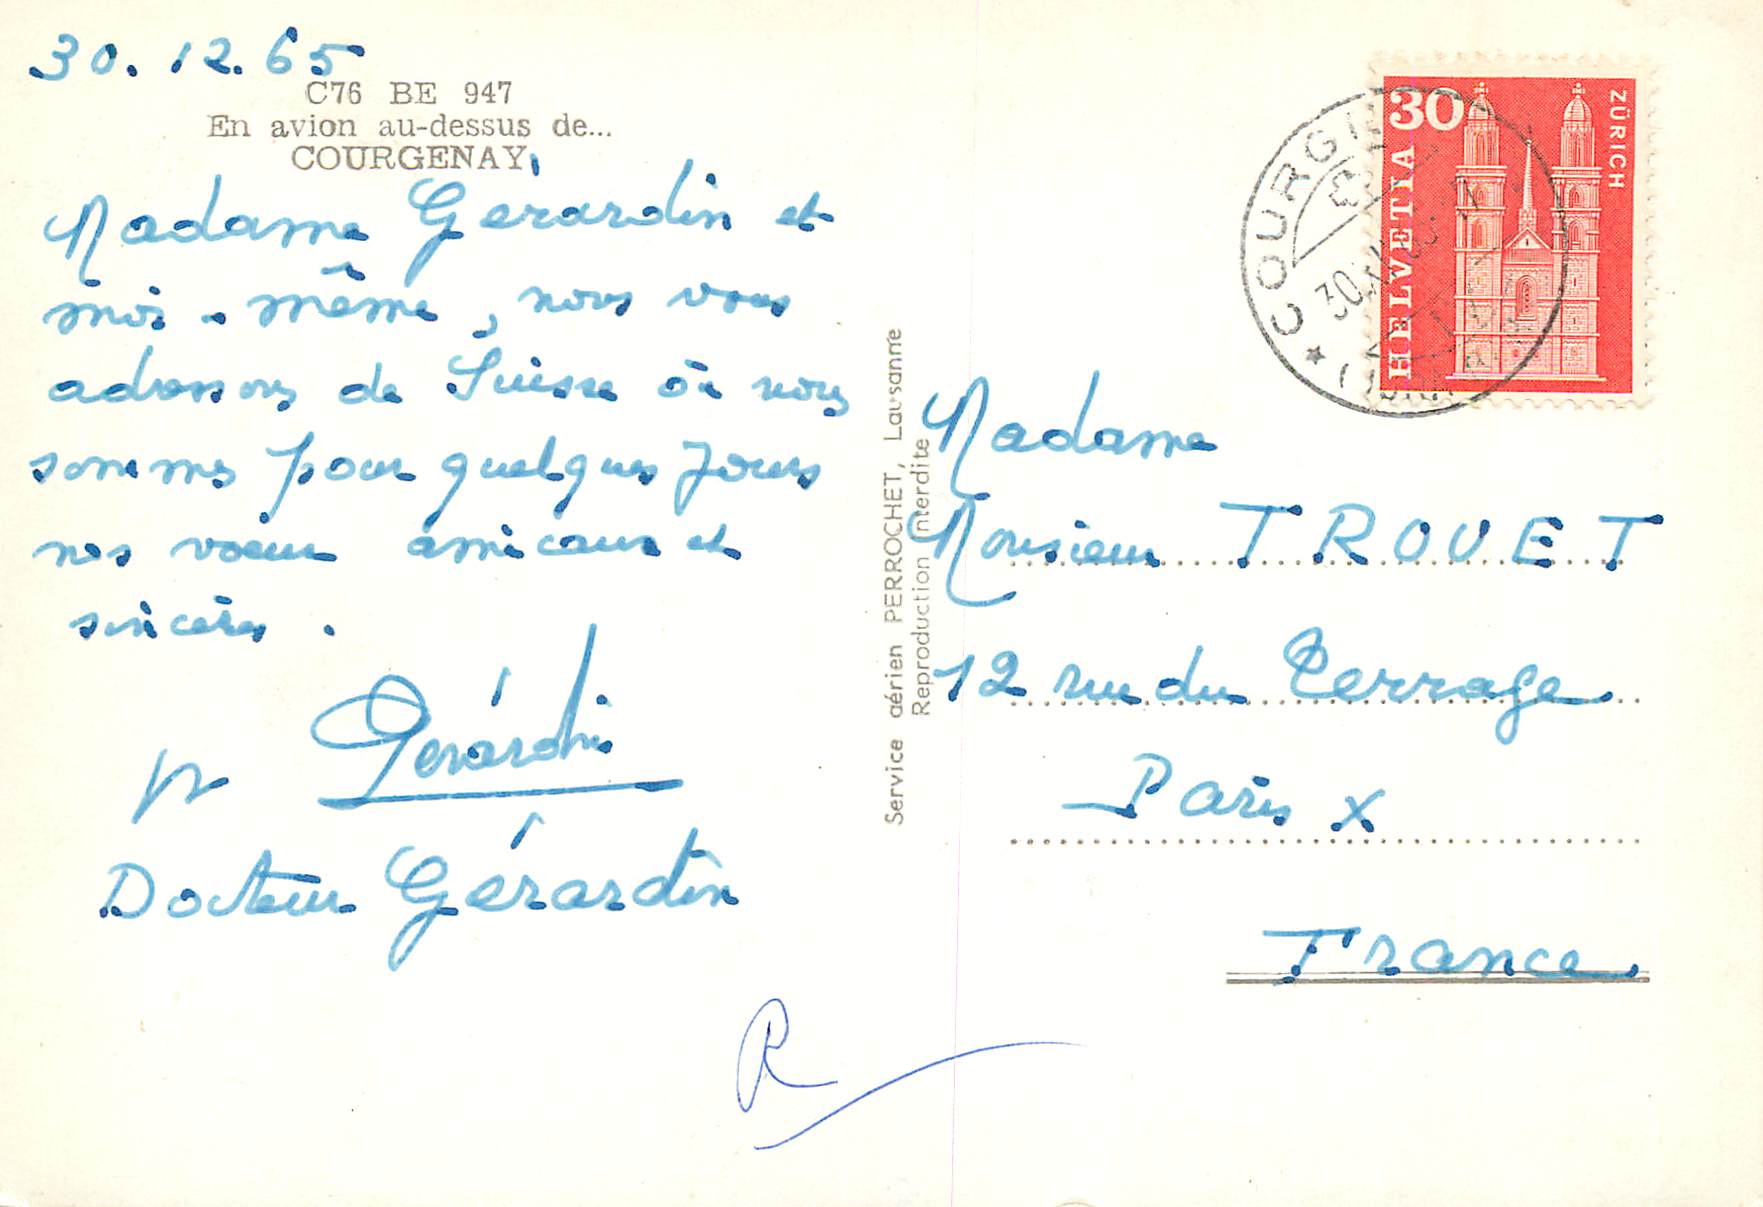 30.12.65
C76 BE 947
En avion au-dessus de...
COURGENAY
Madame Gérardin et
moi-même, nous vous
adressons de Suisse où nous
sommes pour quelques jours
nos voeux amicaux et
sincères.
Gérardin
Docteur Gérardin
Service aérien PERROCHET, Lausanne
Reproduction interdite
30
ZÜRICH
HELVETIA
COURGE
30.
Madame
Monsieur TROUET
12 rue du Terrage
Paris X
France
R